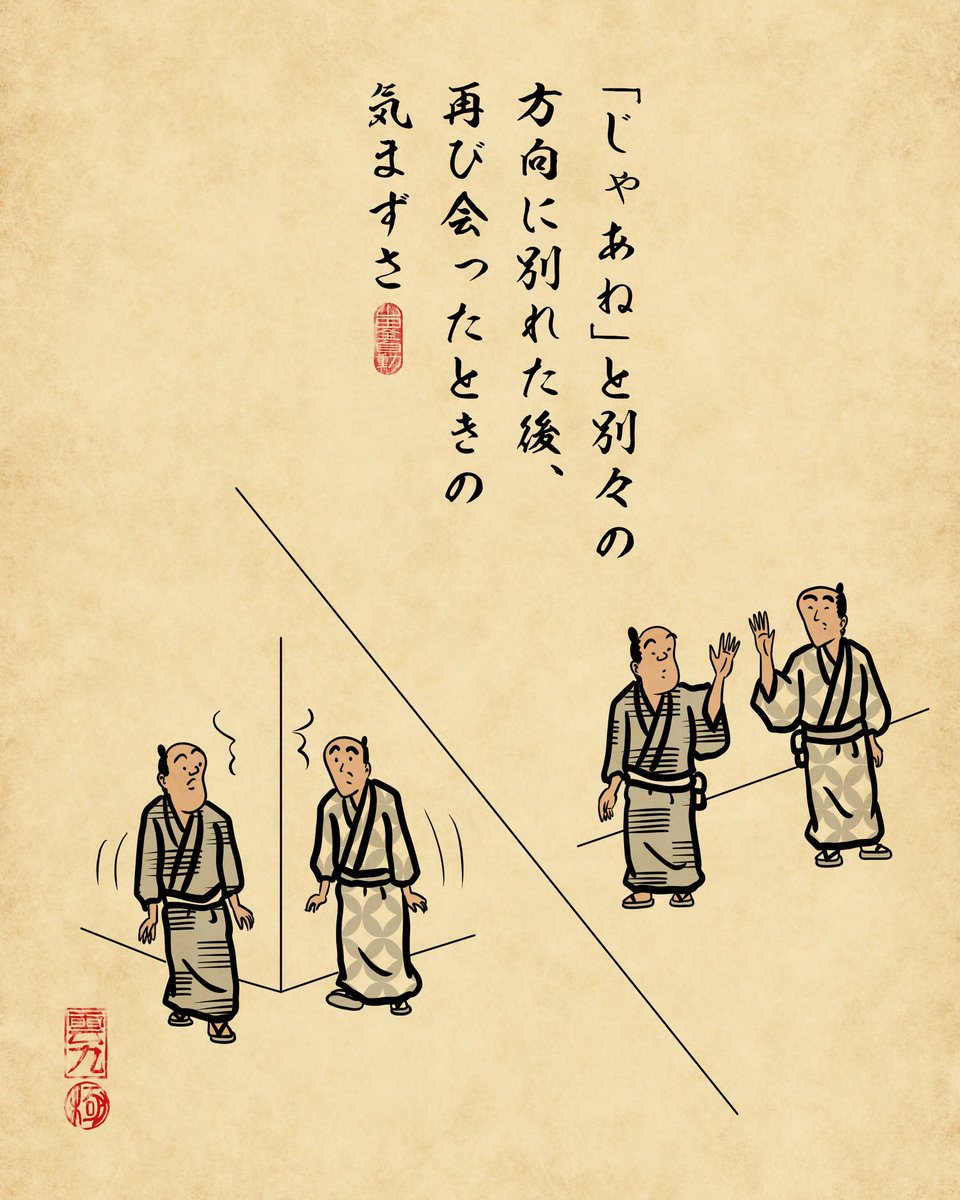 「じゃあね」と別々の
方向に別れた後、
再び会ったときの
気まずさ